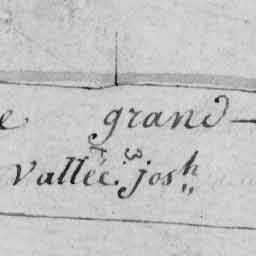 e grand
Vallée. josh